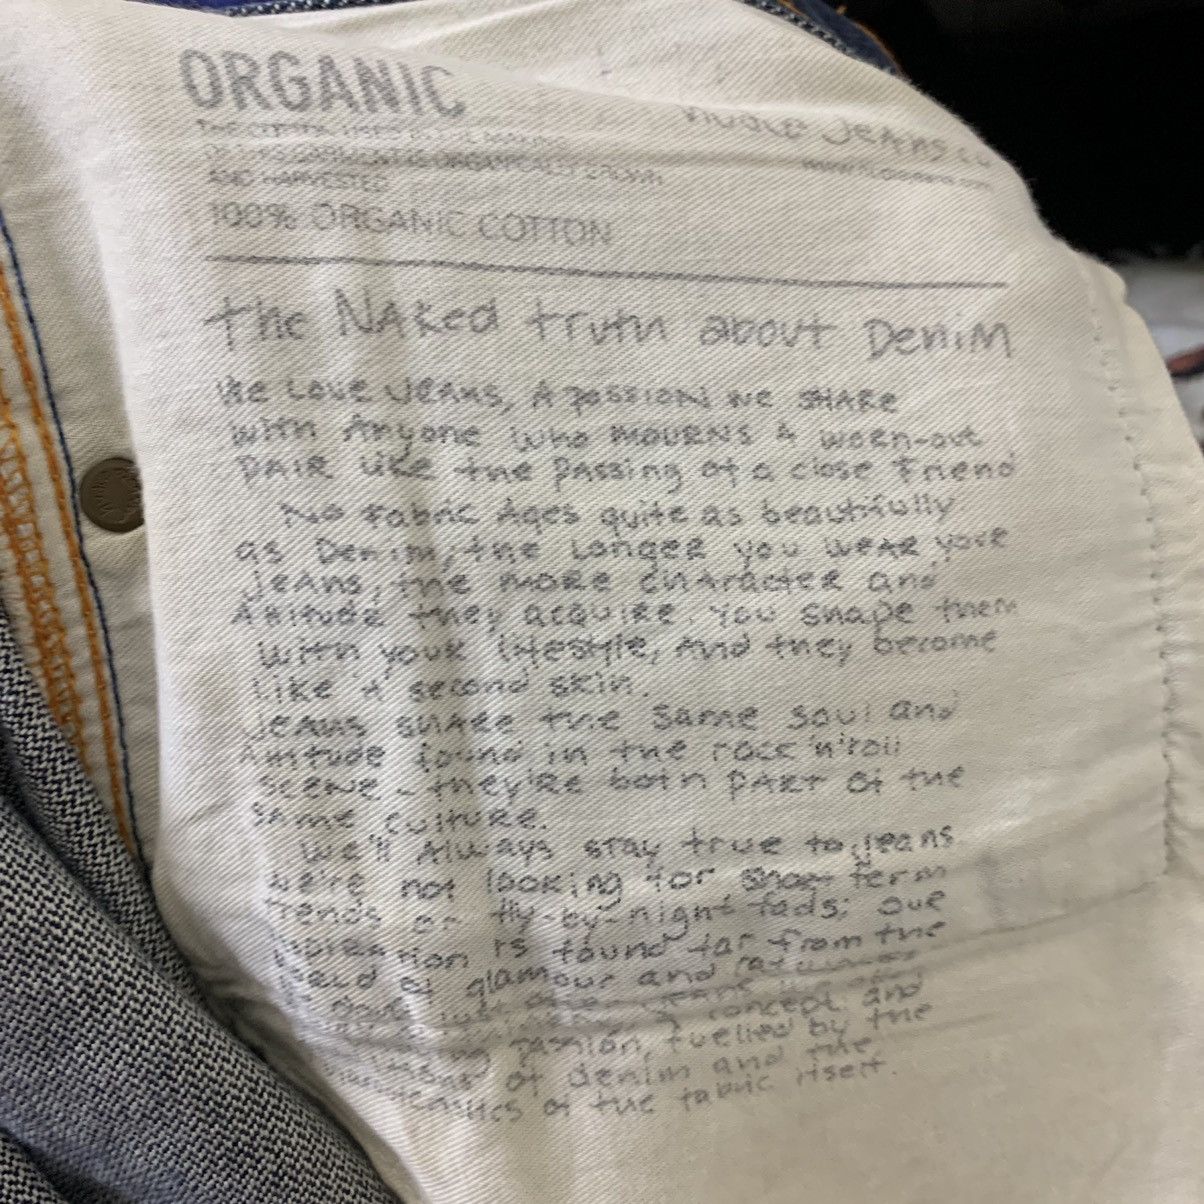 ORGANIC
JEANS CO
OF THIS GARMENT IS ORGANICALLY GROWN
AND HARVESTED
100% ORGANIC COTTON
the NAKed truth about DeniM
We Love JEANS, A passion we SHARe
with Anyone who MOURNS A worn-out
PAIR like the passing of a close friend
No fabric Ages quite as beautifully
as Denim, the Longer you WEAR your
jEANS, the MORE cHARacter and
Attitude they acquire. You shape them
with your lifestyle, And they become
Like A second skin.
JEANS SHARE the same soul and
Attitude found in the rock 'n' roll
Scene - they're both PART of the
SAme culture.
We'll Always stay true to jeans
We're not looking for short term
trends or fly-by-night fads; our
inspiration is found far from the
of glamour and
concept and
passion, fuelled by the
of denim and the
of the fabric itself.